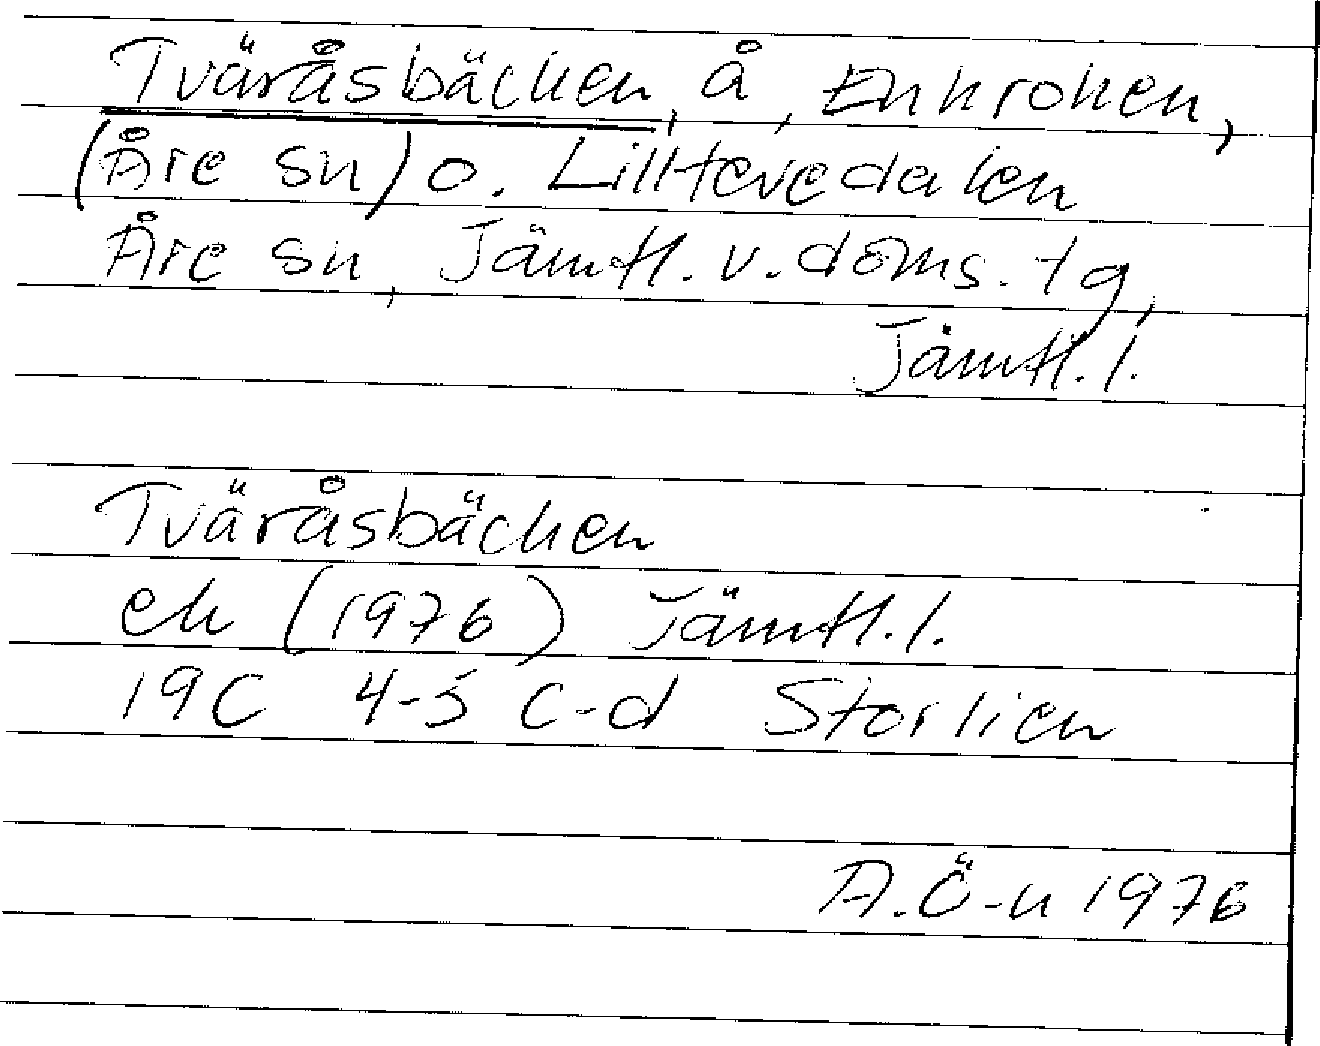 Tväråsbäcken, å, Enkroken,
(Åre sn) o. Lilltevedalen
Åre sn, Jämtl. v. doms. tg,
Jämtl. l.
Tväråsbäcken
ek (1976) Jämtl. l.
19C 4-5 c-d Storlien
A.Ö-n 1976